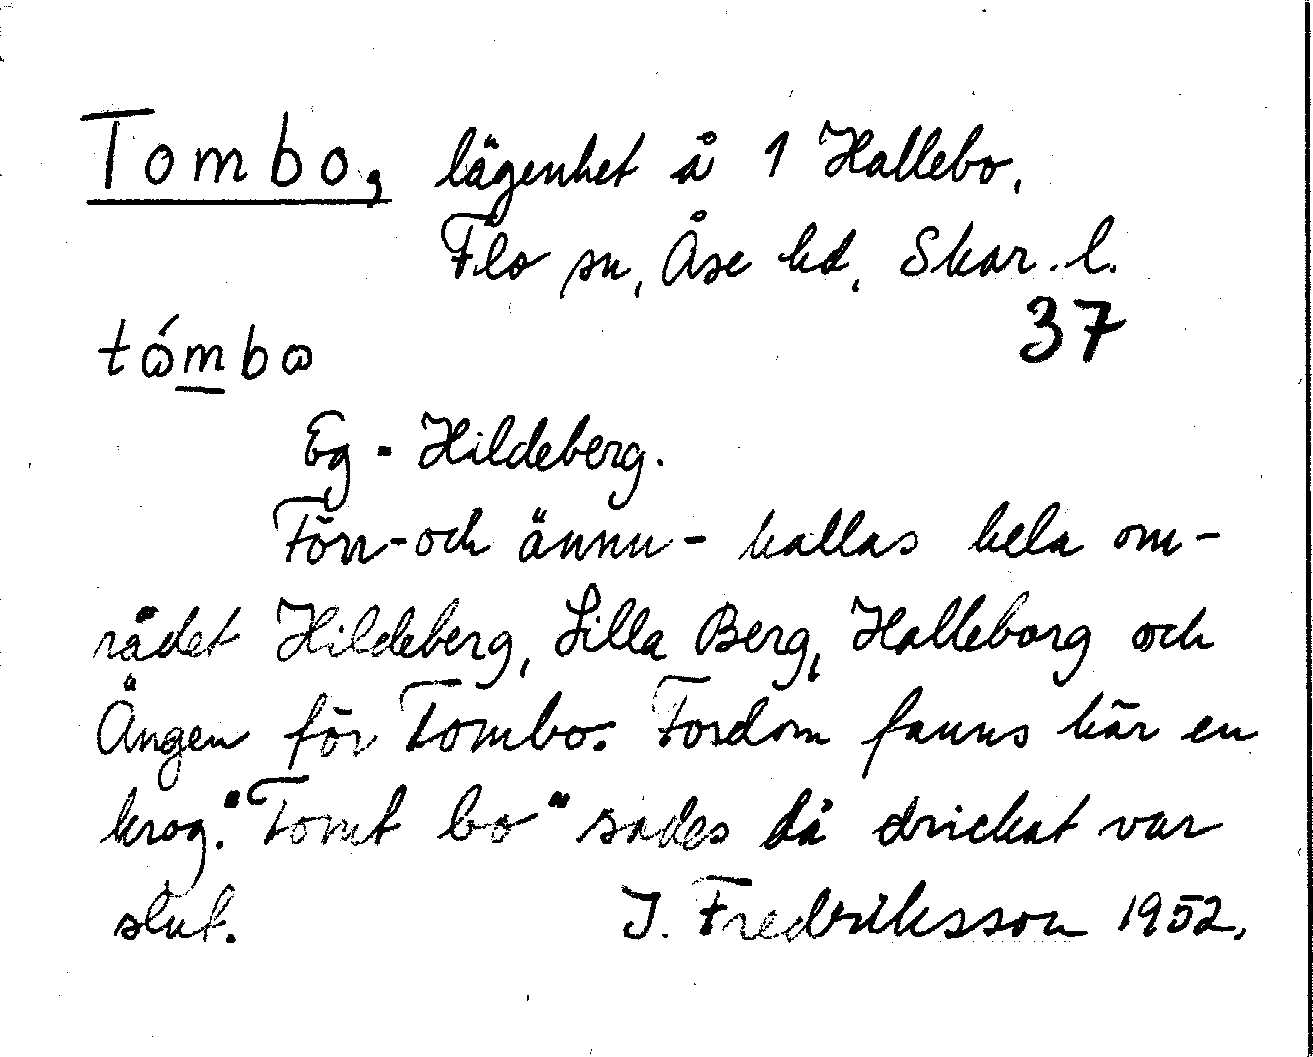 Tombo, lägenhet å 1 Hallebo,
Flo sn, Åse hd, Skar. l.
37
tǿmbω
Eg. Hildeberg.
Förr- och ännu - kallas hela om-
rådet Hildeberg, Lilla Berg, Halleborg och
Ängen för Tombo. Fordom fanns här en
krog. "Tomt bo" sades då drickat var
slut. J. Fredriksson 1952.